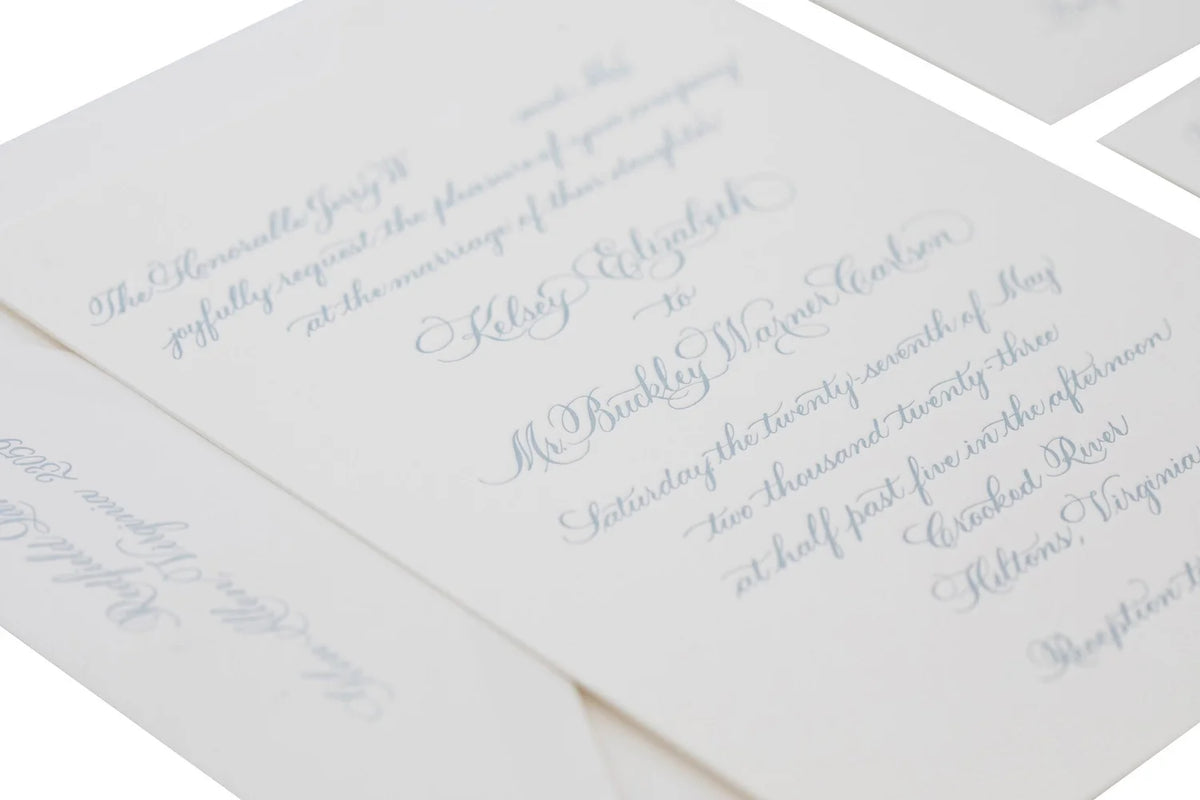 and Mrs.
The Honorable Jerry W
joyfully request the pleasure of your company
at the marriage of their daughter
Kelsey Elizabeth
to
Mr. Buckley Warner Carlson
Saturday the twenty-seventh of May
two thousand twenty-three
at half past five in the afternoon
Crooked River
Hiltons, Virginia
Reception
Redfield
Glen Allen, Virginia 23059